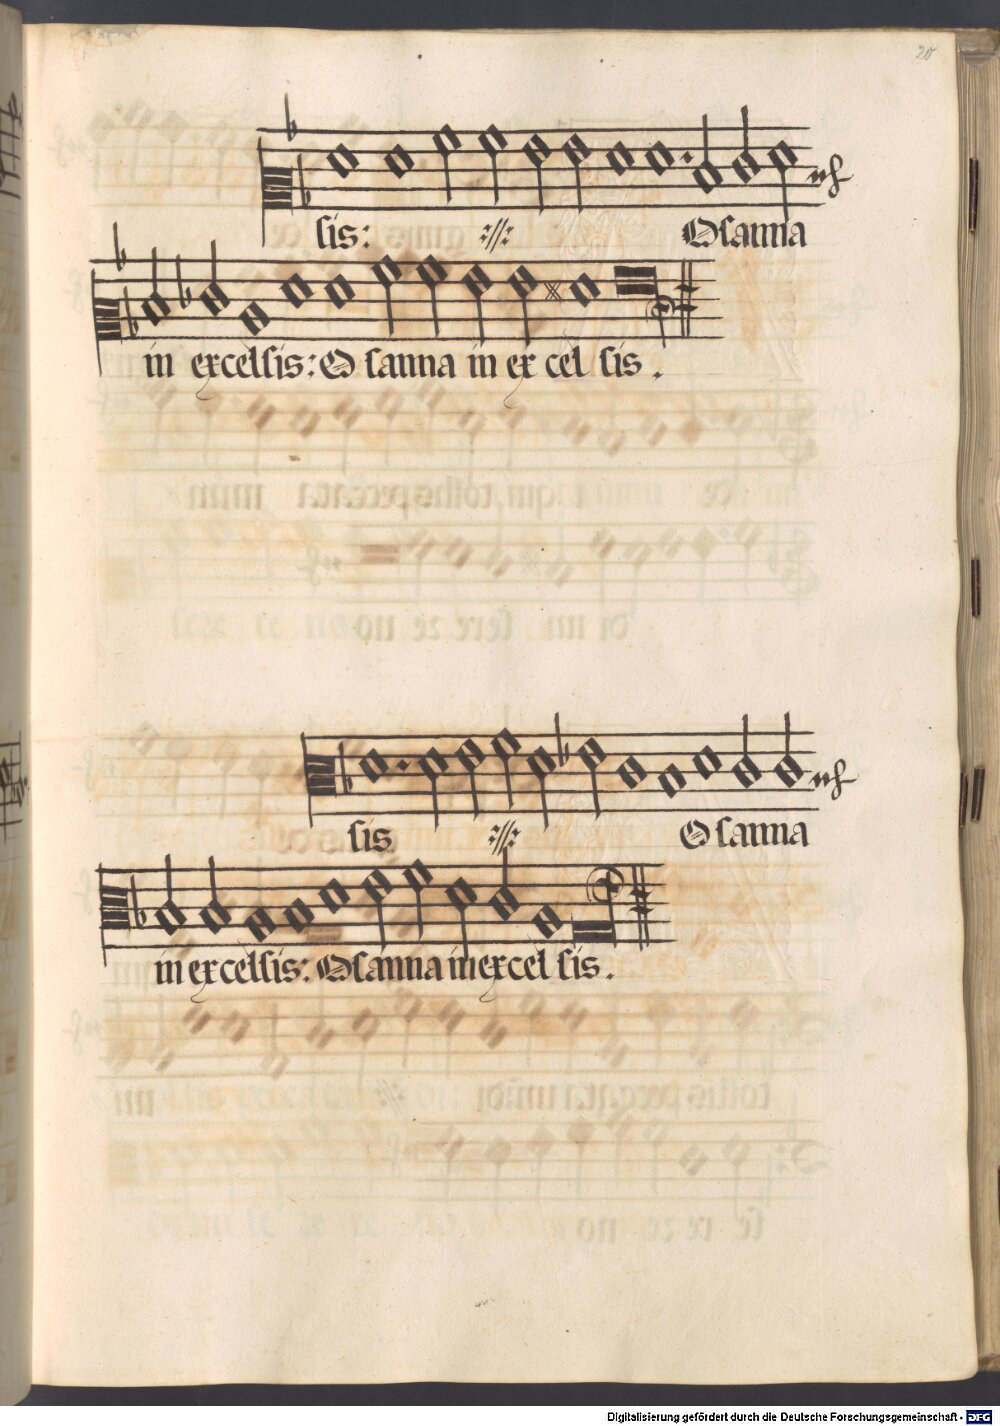 20
sis: :||: Osanna
in excelsis: Osanna in excelsis.
sis :||: Osanna
in excelsis: Osanna in excelsis.
Digitalisierung gefördert durch die Deutsche Forschungsgemeinschaft - DFG